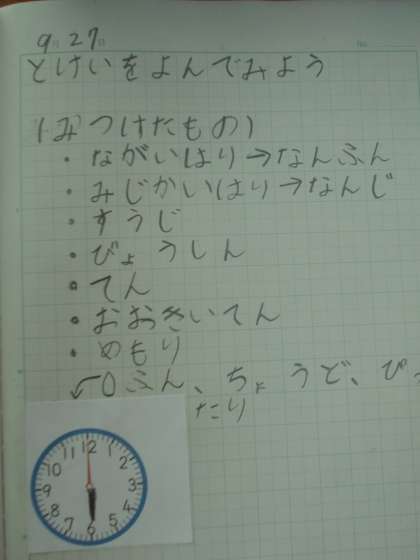 9月27日
No.
とけいをよんでみよう
(みつけたもの)
・ながいはり→なんふん
・みじかいはり→なんじ
・すうじ
・びょうしん
・てん
・おおきいてん
・めもり
0ふん、ちょうど、ぴっ
たり
12
1
2
3
4
5
6
7
8
9
10
11